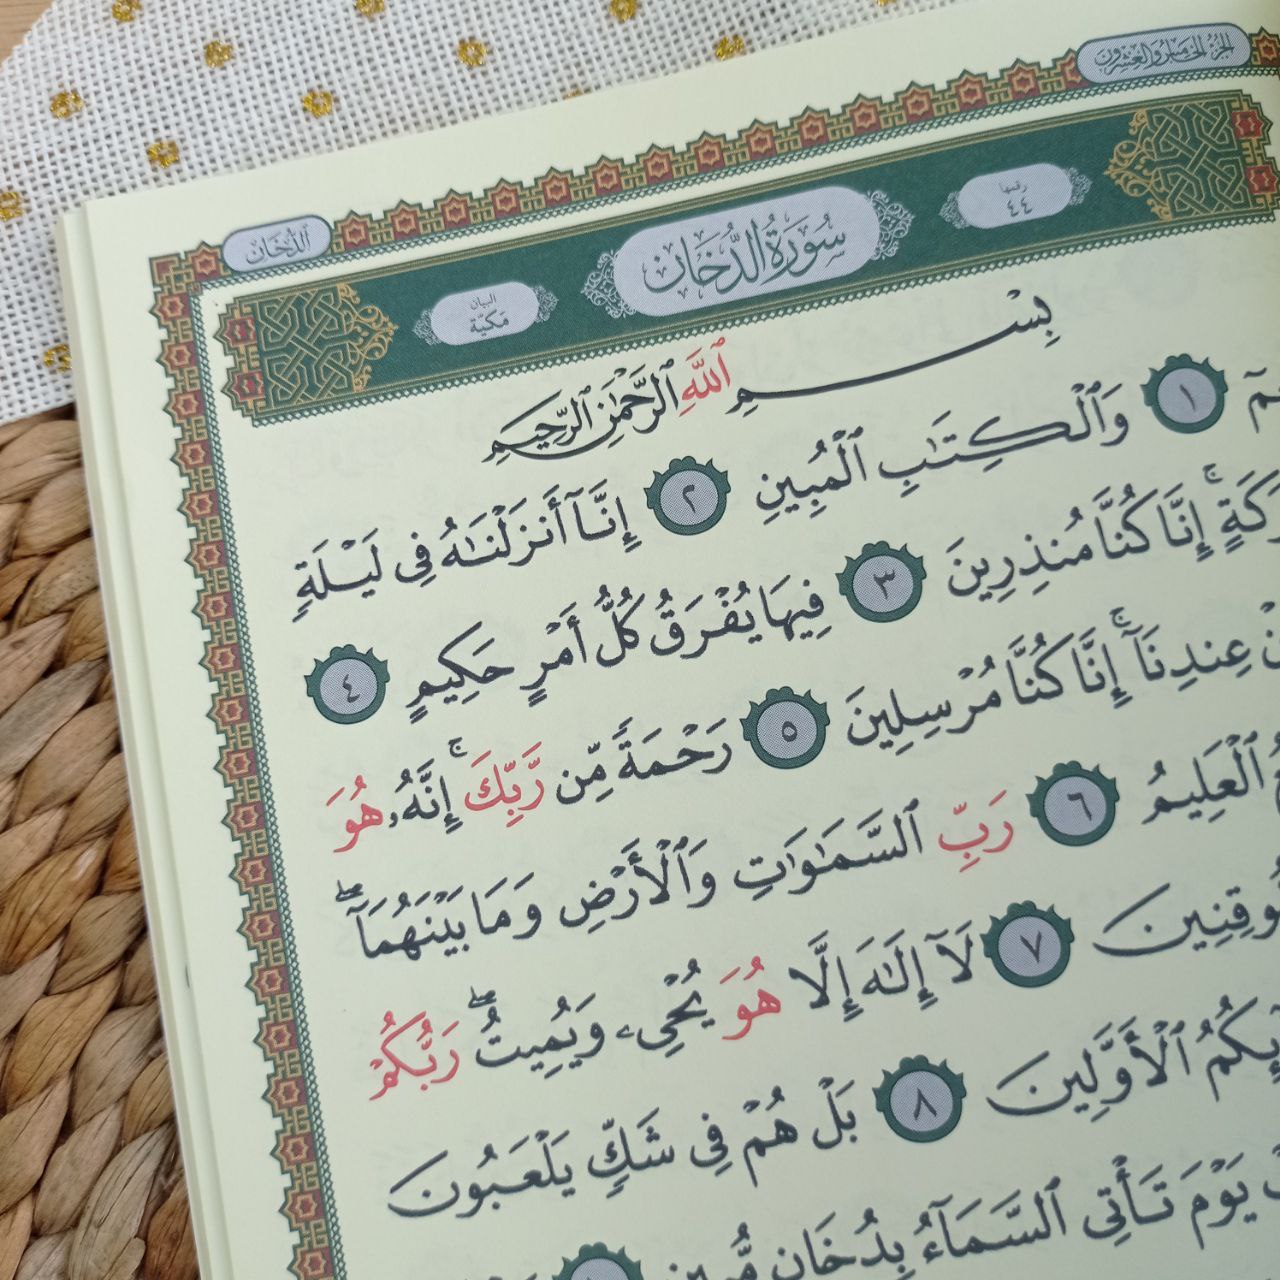 الجزء الخامس والعشرون
الدخان
رقمها
٤٤
سُورَةُ الدُّخَانِ
البيان
مَكيّة
بِسْمِ ٱللَّهِ ٱلرَّحْمَٰنِ ٱلرَّحِيمِ
١ وَٱلْكِتَٰبِ ٱلْمُبِينِ ٢ إِنَّآ أَنزَلْنَٰهُ فِى لَيْلَةٍ
إِنَّا كُنَّا مُنذِرِينَ ٣ فِيهَا يُفْرَقُ كُلُّ أَمْرٍ حَكِيمٍ ٤
عِندِنَآ ۚ إِنَّا كُنَّا مُرْسِلِينَ ٥ رَحْمَةً مِّن رَّبِّكَ ۚ إِنَّهُۥ هُوَ
ٱلْعَلِيمُ ٦ رَبِّ ٱلسَّمَٰوَٰتِ وَٱلْأَرْضِ وَمَا بَيْنَهُمَآ ۖ
٧ لَآ إِلَٰهَ إِلَّا هُوَ يُحْىِۦ وَيُمِيتُ ۖ رَبُّكُمْ
ٱلْأَوَّلِينَ ٨ بَلْ هُمْ فِى شَكٍّ يَلْعَبُونَ
يَوْمَ تَأْتِى ٱلسَّمَآءُ بِدُخَانٍ مُّبِينٍ